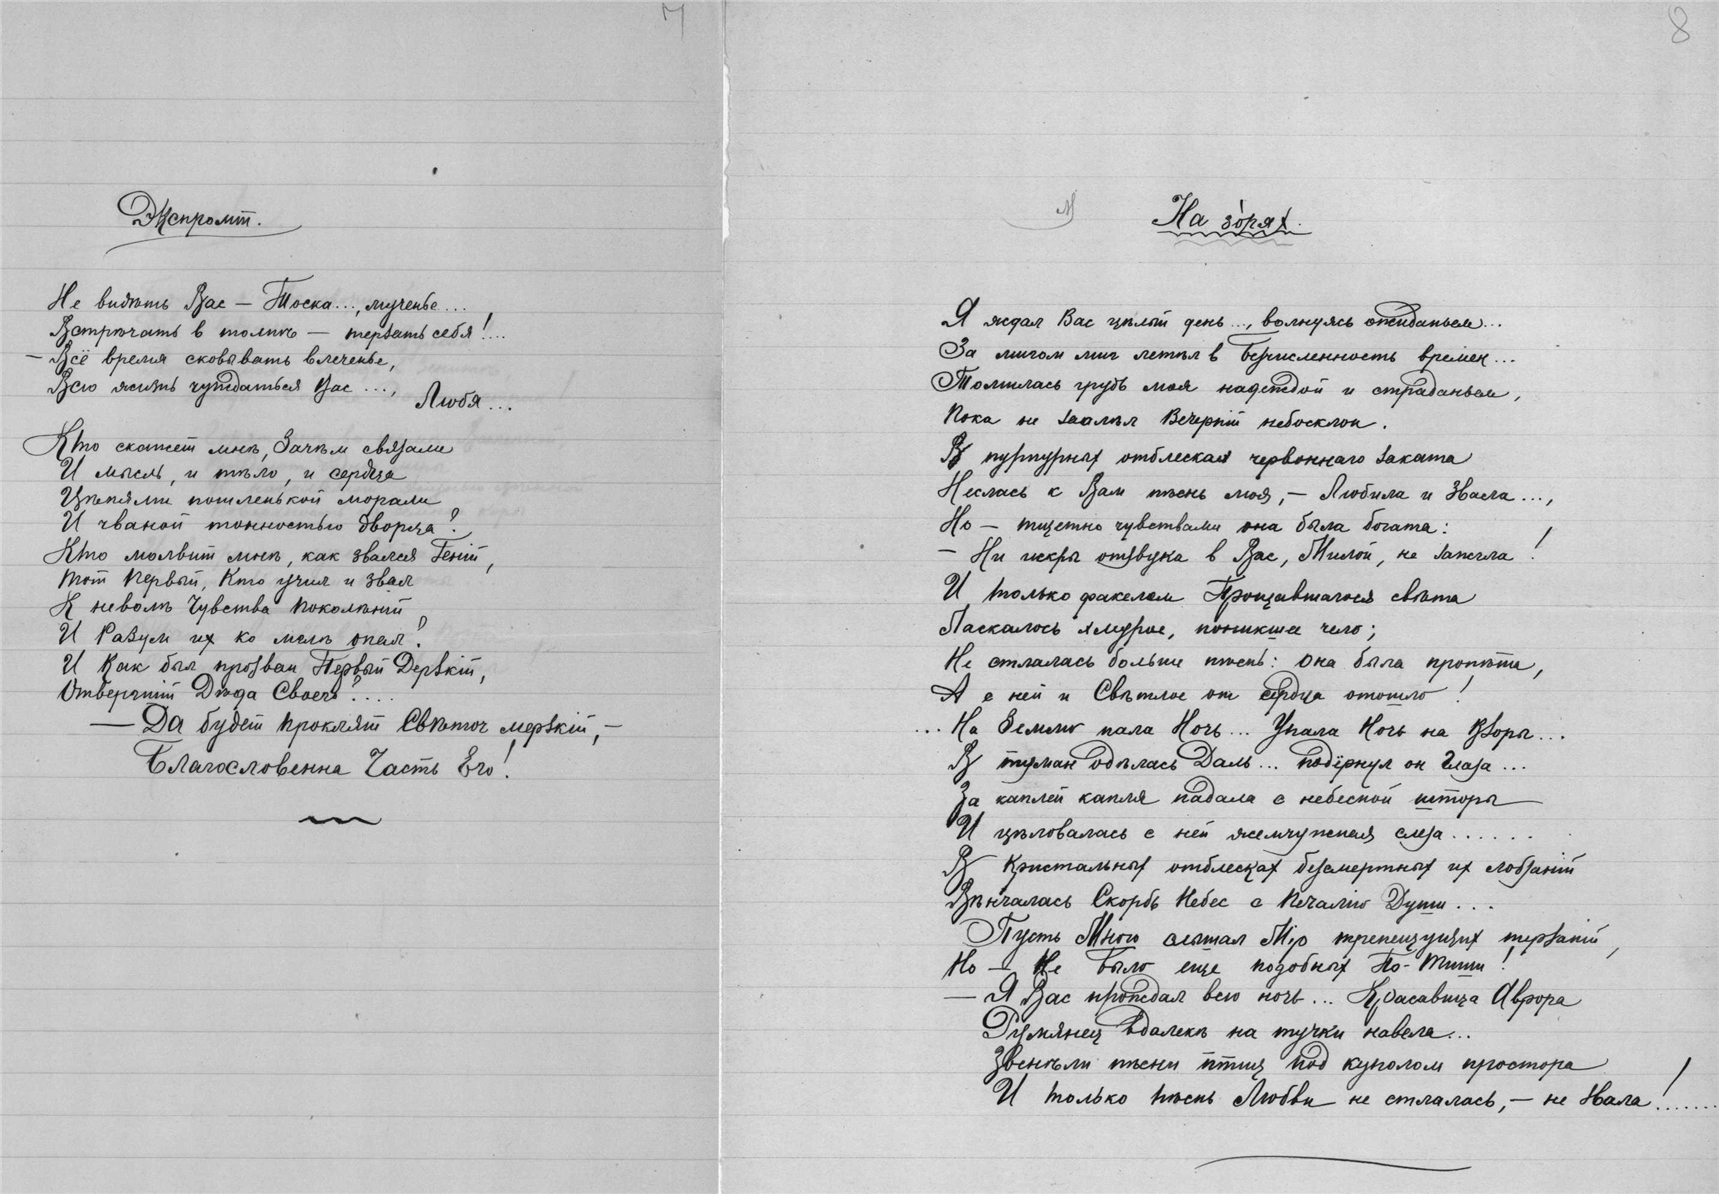 7
Экспромт.
Не видѣть Вас — Тоска..., мученье....
Встрѣчать в толпѣ — терзать себя!....
— Всё время сковывать влеченье,
Всю жизнь чуждаться Вас ...,
Любя...
Кто скажет мнѣ, Зачѣм связали
И мысль, и тѣло, и сердца
Цѣпями пошленькой морали
И чваной тонностью дворца?
Кто молвит мнѣ, как звался Геній,
Тот Первый, Кто учил и звал
К неволѣ Чувства Поколѣній
И Разум их ко мглѣ
И Как был прозван Первый Дерзкій,
Отвергшій Дѣда Своего?....
— Да будет проклят Свѣточ мерзкій, —
Благословенна Часть Его!
8
На зо́рях.
Я ждал Вас цѣлый день ..., волнуясь ожиданьем...
За мигом миг летѣл в безчисленность времен...
Томилась грудь моя надеждой и страданьем,
Пока не заалѣл Вечерній небосклон.
В пурпурных отблесках червоннаго заката
Неслась к Вам пѣснь моя, — Любила и Звала...,
Но — тщетно чувствами она была богата:
— Ни искры отзвука в Вас, Милой, не зажгла!
И только факелом Прощавшагося свѣта
Ласкалось хмурое, поникшее чело;
Не стлалась больше пѣснь: она была пропѣта,
А с ней и Свѣтлое от сердца отошло!
... На Землю пала Ночь... Упала Ночь на Взоры...
В туман одѣлась Даль... подёрнул он Глаза...
За каплей капля падала с небесной шторы
И цѣловалась с ней жемчужная слеза......
В Кристальных отблесках безсмертных их лобзаній
Вѣнчалась Скорбь Небес с Печалью Души...
Пусть Много слышал Мір трепещущих терзаній,
Но — Не было еще подобных По-Тиши!
— Я Вас прождал всю ночь... Красавица Аврора
Румянец вдалекѣ на тучки навела...
Звенѣли пѣсни птиц под куполом простора
И только пѣснь Любви не стлалась, — не Звала!.......